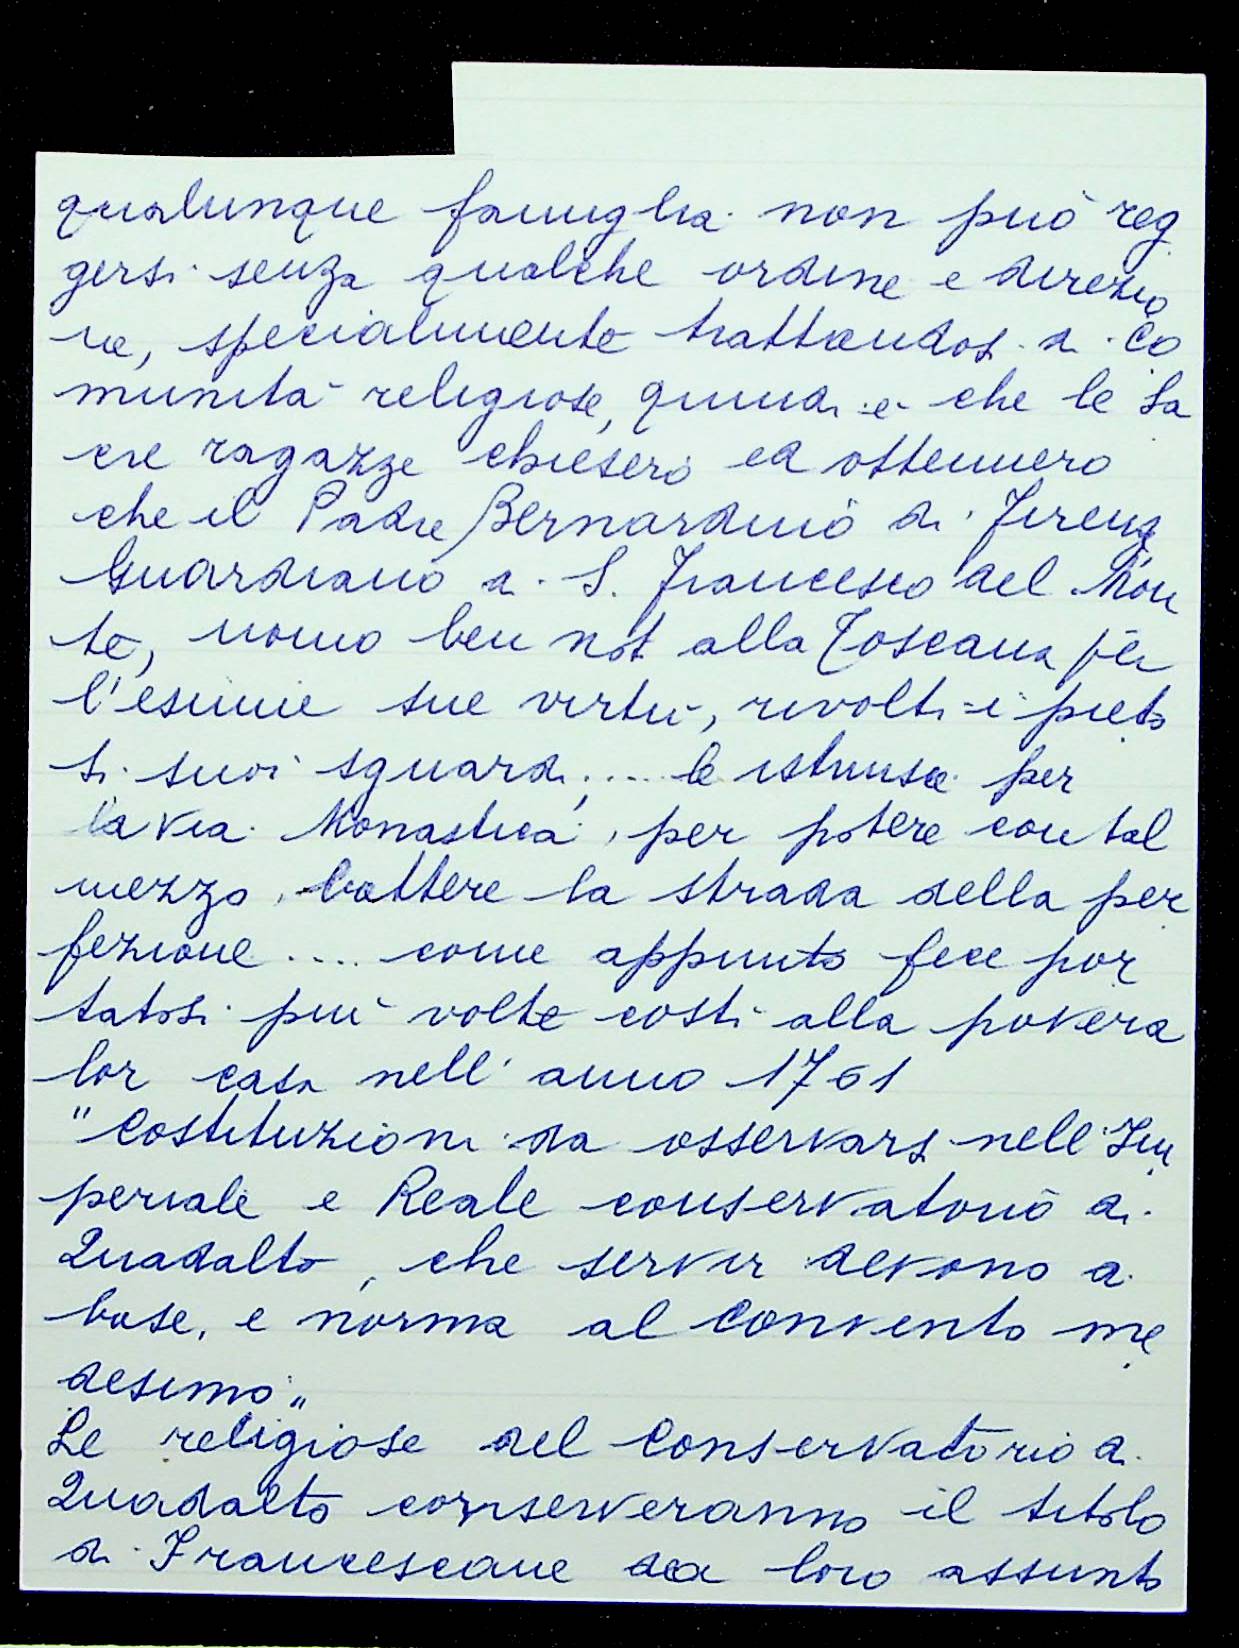 qualunque famiglia non può reg
gersi senza qualche ordine e direzio
ne, specialmente trattandosi di co
munità religiose, quindi è che le Sa
cre ragazze chiesero ed ottennero
che il Padre Bernardino di Firenz
Guardiano di S. Francesco del Mon
te, uomo ben not alla Toscana per
l'esimie sue virtù, rivolti i pieto
si suoi sguardi, .... le istruisce per
la via Monastica, per potere con tal
mezzo, battere la strada della per
fezione .... come appunto fece por
tatosi più volte costì alla povera
lor casa nell'anno 1761
"Costituzioni da osservarsi nell'Im
periale e Reale conservatorio di
Quadalto, che servir devono di
base, e norma al Convento me
desimo"
Le religiose del Conservatorio di
Quadalto conserveranno il titolo
di Francescane da loro assunto